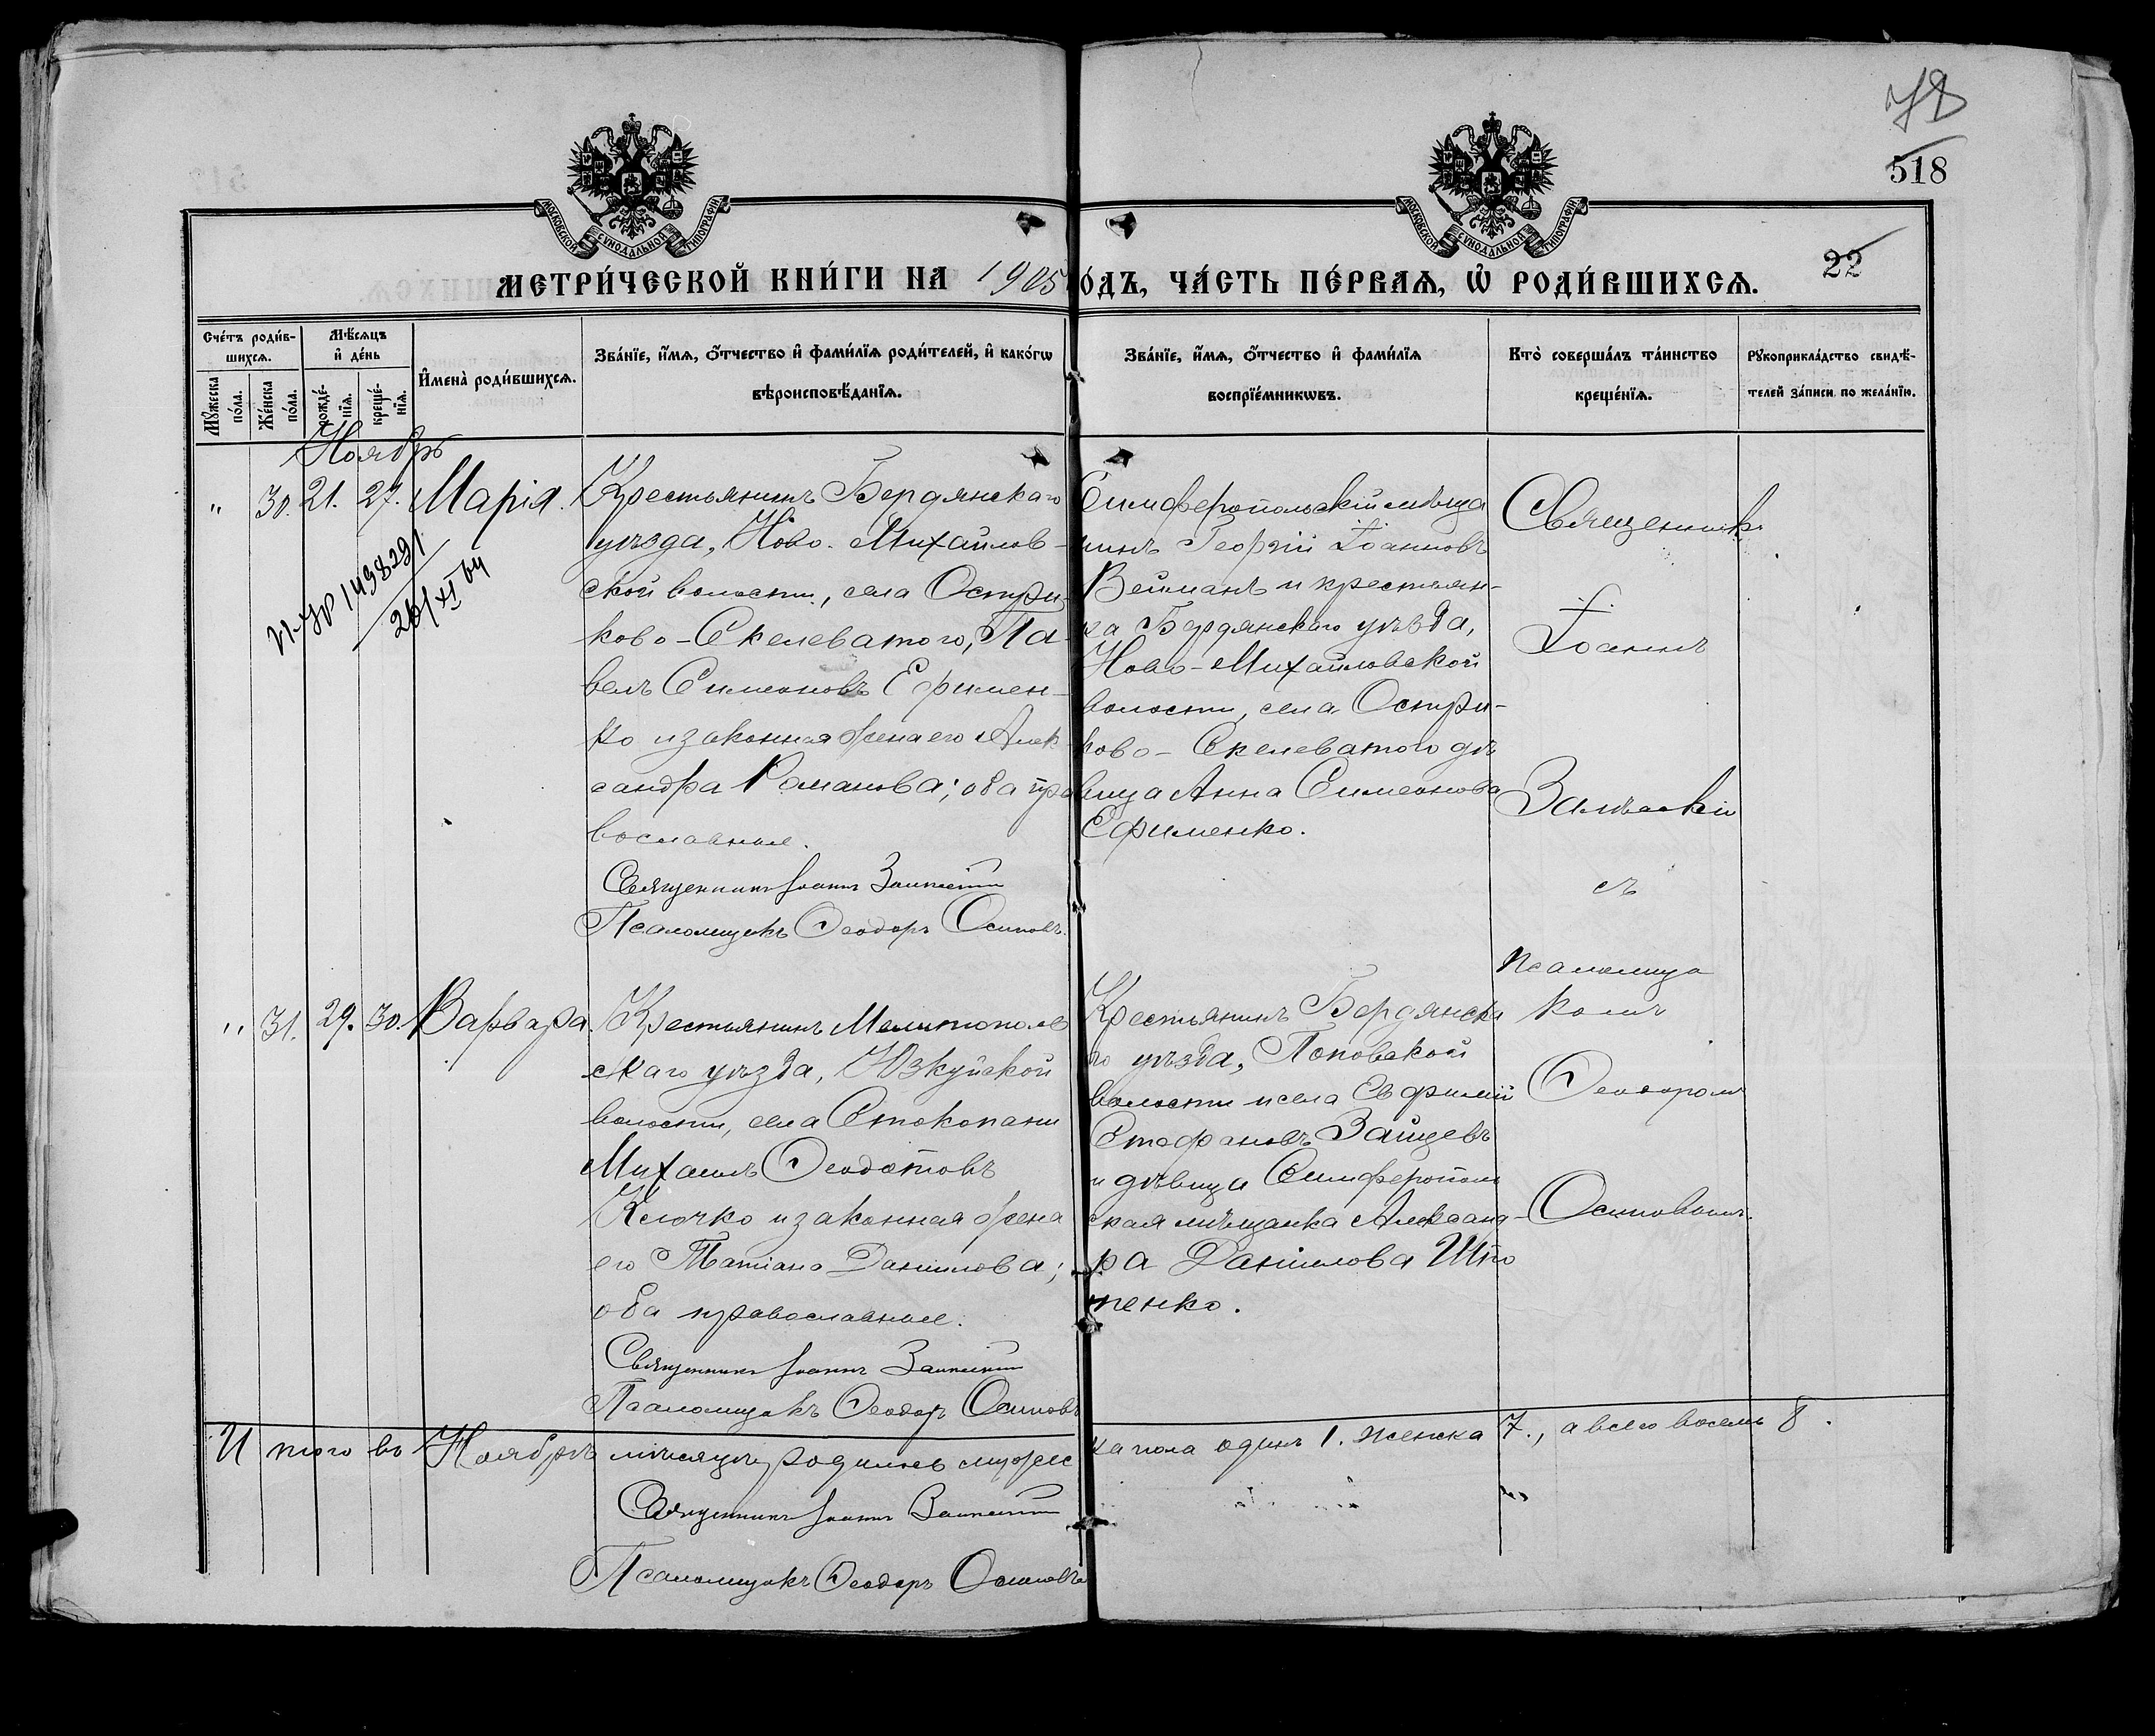 78
518
МОСКОВСКОЙ СѴНОДАЛЬНОЙ ТИПОГРАФІИ
МОСКОВСКОЙ СѴНОДАЛЬНОЙ ТИПОГРАФІИ
22
МЕТРИ́ЧЕСКОЙ КНИ́ГИ НА 1905 О́ДЪ, ЧА́СТЬ ПЕ́РВАѦ, Ѽ РОДИ́ВШИХСѦ.
Сче́тъ роди́в-
шихсѧ.
Мꙋ́жеска по́ла.
Же́нска по́ла.
Мѣ́сѧцъ
и҆ де́нь
рожде́-
нїѧ.
креще́-
нїѧ.
И҆мена̀ роди́вшихсѧ.
Зва́нїе, и҆́мѧ, ѻ҆́тчество и҆ фами́лїѧ роди́телей, и҆ како́гѡ
вѣроисповѣ́данїѧ.
Зва́нїе, и҆́мѧ, ѻ҆́тчество и҆ фами́лїѧ
воспрїе́мникѡвъ.
Кто̀ соверша́лъ та́инство
креще́нїѧ.
Рꙋкоприкла́дство свидѣ́-
телей за́писи по жела́нїю.
Ноябрь
" 30. 21. 27. Марія.
1498291
26/XI 64
Крестьянинъ Бердянскаго
уѣзда, Ново-Михайлов-
ской волости, села Остри-
ково-Скелеватого, Па-
велъ Симеоновъ Ефимен-
ко и законная жена его Алек-
сандра Романова; оба пра
вославные.
Священникъ Іоаннъ
Псаломщикъ Ѳеодоръ Осиповъ.
Симферопольскій мѣща
нинъ Георгій Іоанновъ
Вейманъ и крестьян-
ка Бердянскаго уѣзда,
Ново-Михайловской
волости, села Остри-
ково-Скелеватого дѣ
вица Анна Симеонова
Ефименко.
Священникъ
Іоаннъ
съ
псаломщи
комъ
Ѳеодоромъ
Осиповымъ.
" 31. 29. 30. Варвара.
Крестьянинъ Мелитополь
скаго уѣзда, Юзкуйской
волости, села Стокопани
Михаилъ Ѳеодотовъ
Клочко и законная жена
его Татіана Даниилова;
оба православные.
Священникъ Іоаннъ
Псаломщикъ Ѳеодоръ Осиповъ
Крестьянинъ Бердянска
го уѣзда, Поповской
волости и села Евфимій
Стефановъ Зайцевъ
и дѣвица Симферополь
ская мѣщанка Александ-
ра Даніилова
пенко.
Итого въ Ноябрѣ мѣсяцѣ родилось мужес
ка пола одинъ 1. женска 7., а всего восемь 8.
Священникъ Іоаннъ
Псаломщикъ Ѳеодоръ Осиповъ